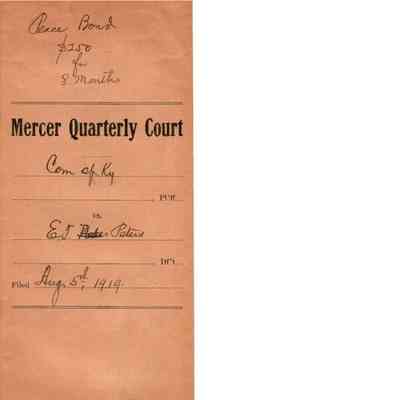 Peace Bond
$250
for
8 Months
Mercer Quarterly Court
Com of Ky
PLFF.
vs.
E T Peters
DFT.
Filed Aug. 5th, 1919